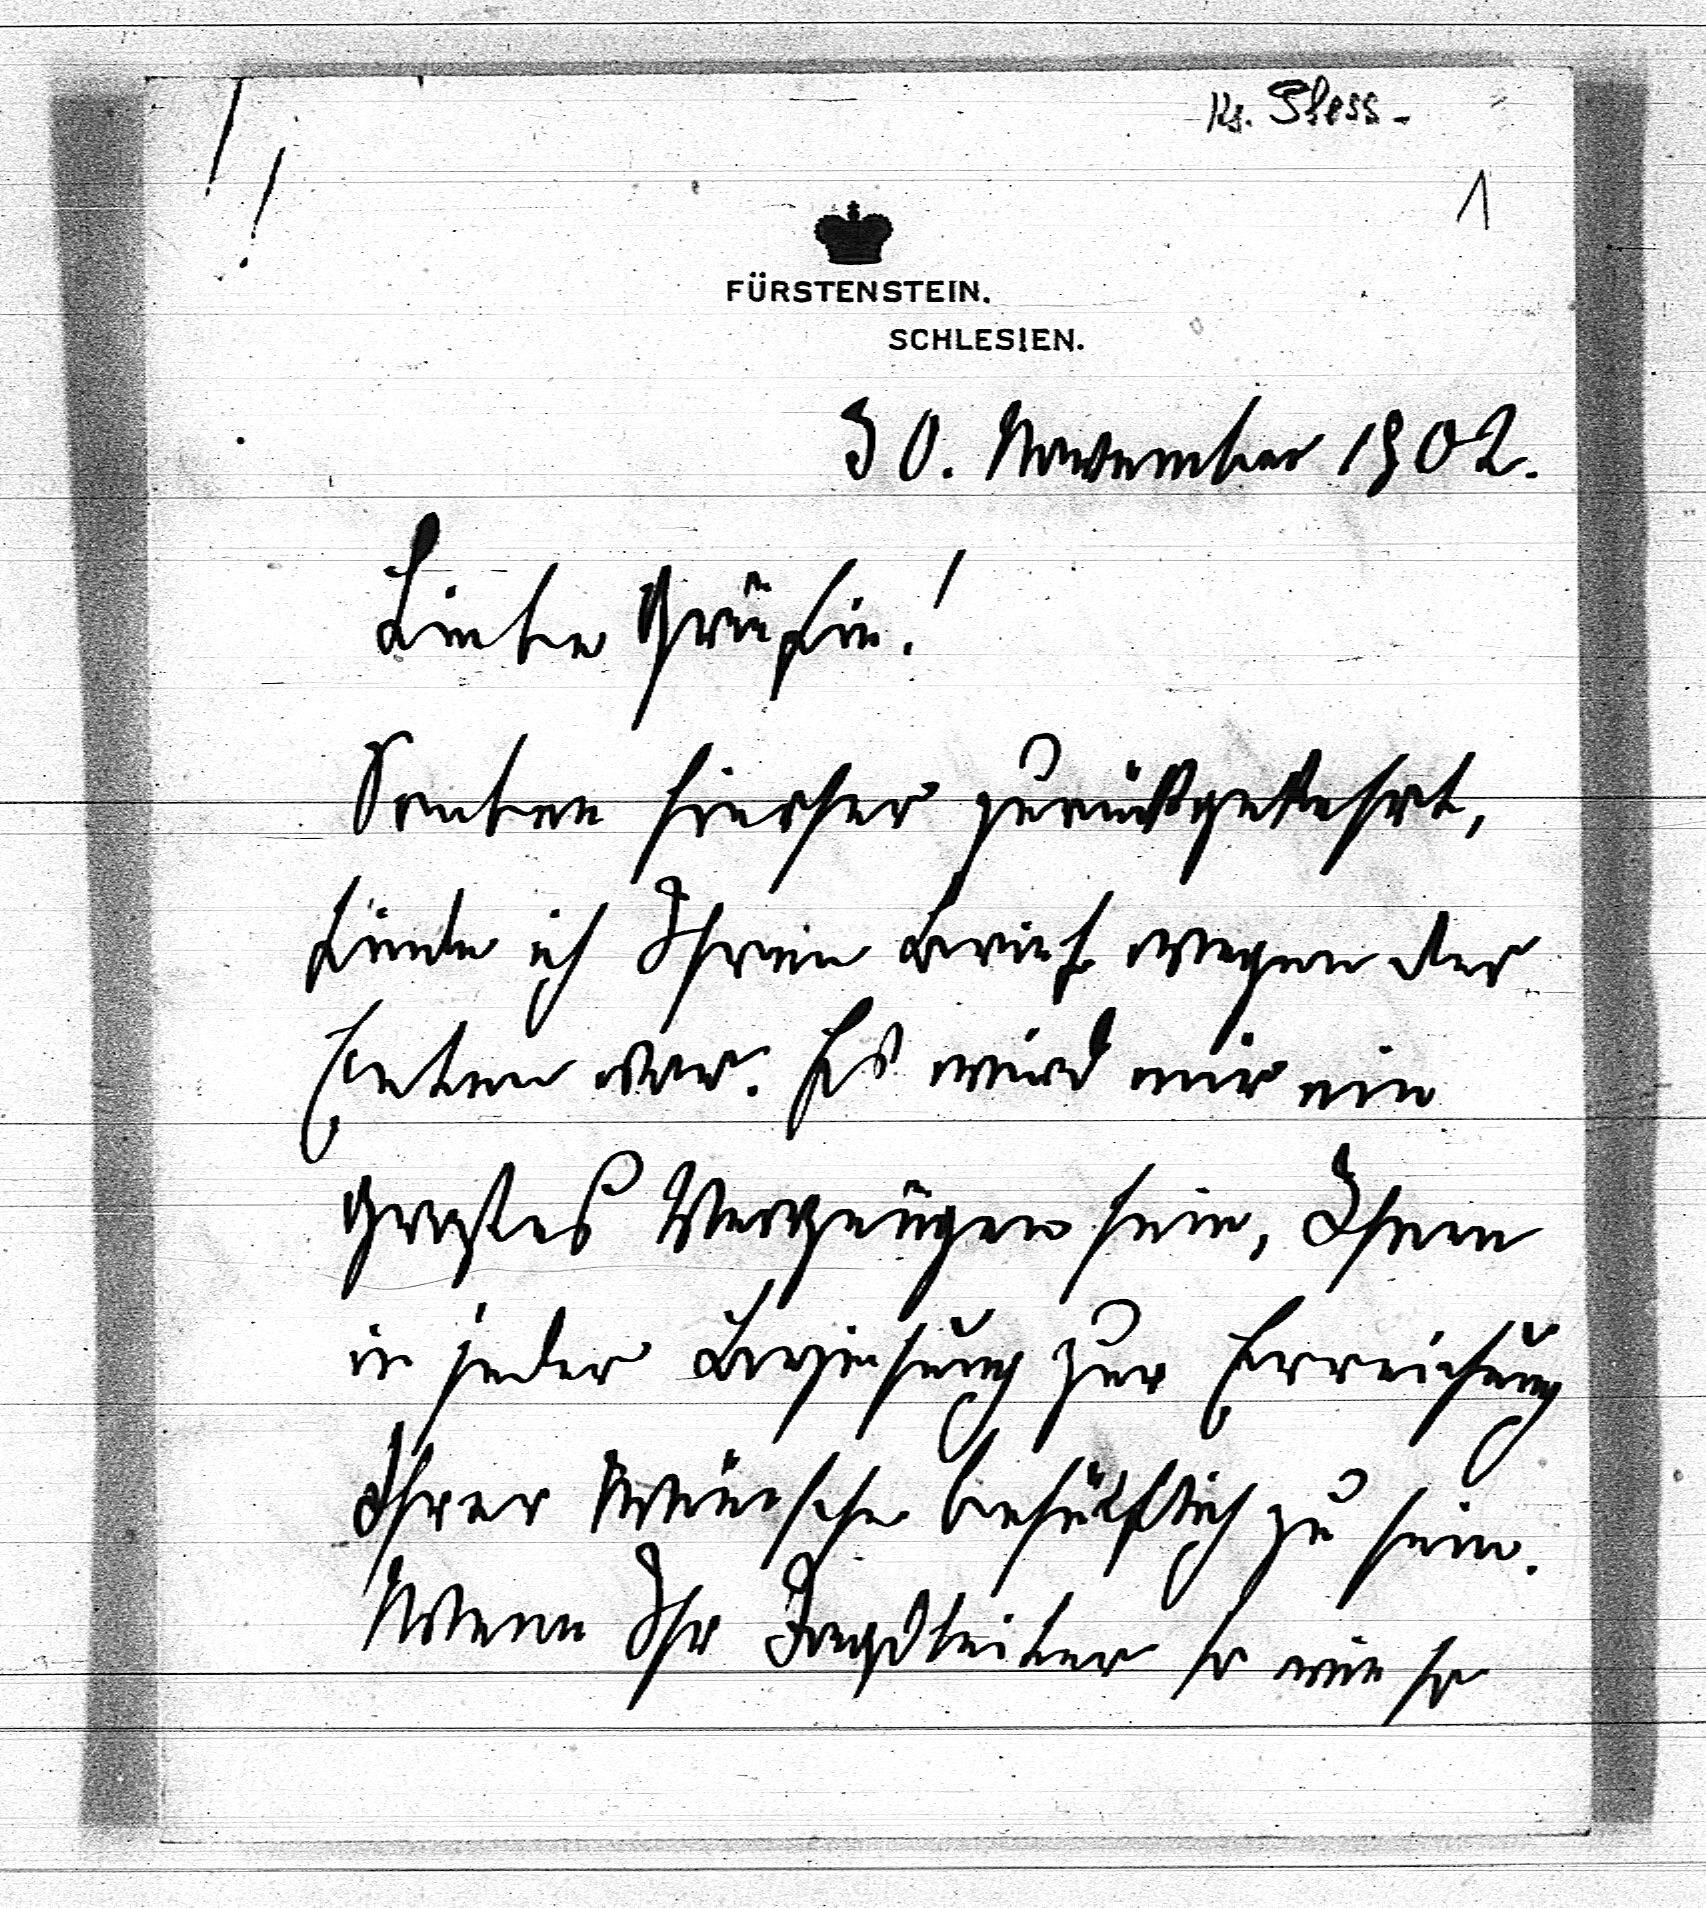 Ks. Pless.
1
FÜRSTENSTEIN.
SCHLESIEN.
30. November 1902.
Liebe Gräfin!
Soeben hierher zurückgekehrt,
finde ich Ihren Brief wegen der
Enten vor. Es wird mir ein
großes Vergnügen sein, Ihnen
in jeder Beziehung zur Erreichung
Ihrer Wünsche behülflich zu sein.
Wenn Ihr Jagdleiter so wie so